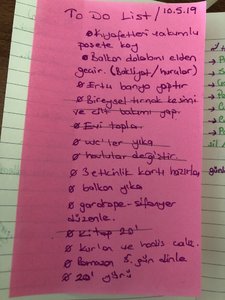 To Do List / 10.5.19
Kıyafetleri vakumlu
poşete koy
Balkon dolabını elden
geçir. (Bakliyat / hurular)
Ersu banyo yaptır
Bireysel tırnak kesimi
ve cilt bakımı yap.
Evi topla
wc'ler yıka
havlular değiştir.
3 etkinlik kartı hazırla
balkon yıka
gardrope - şifonyer
düzenle.
Kitap 20'
kur'an ve hadis calış.
Ramazan 5. gün dinle
20' yürü